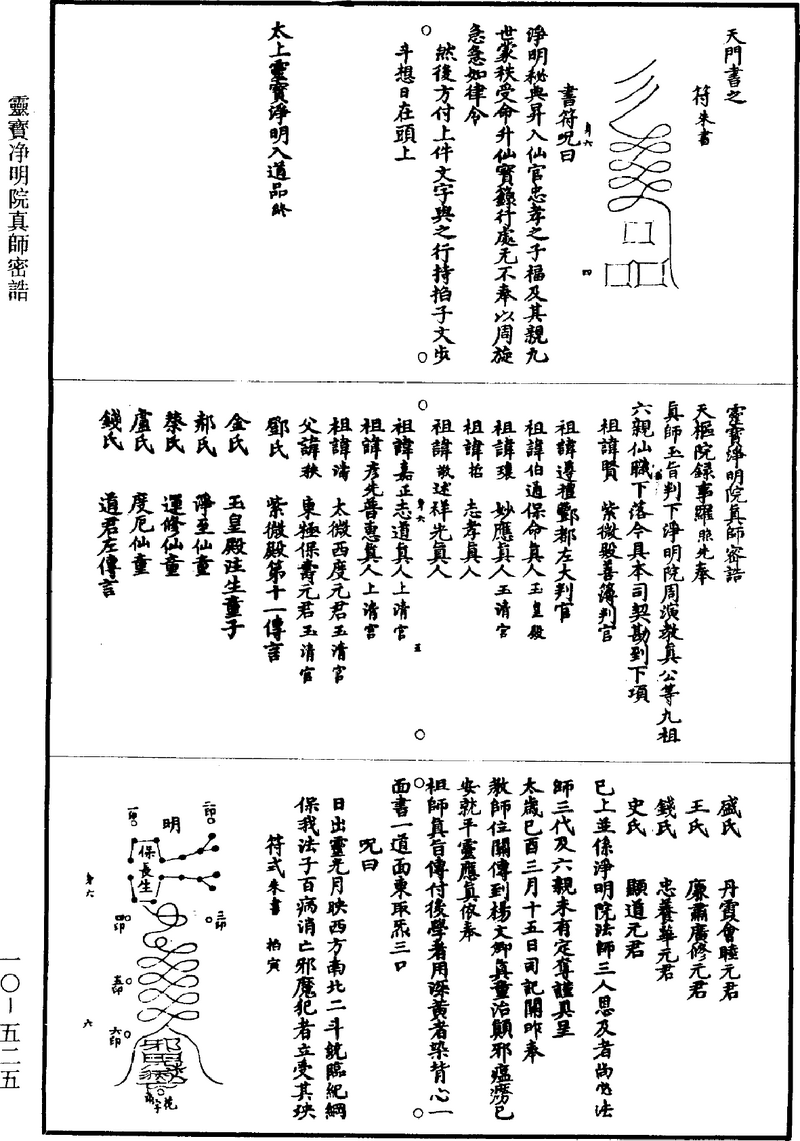 天門書之
符朱書
書符呪曰
淨明秘典昇入仙官忠孝之子福及其親九
世蒙秩受命升仙寶籙行處元不奉以周旋
急急如律令
然後方付上件文字與之行持掐子文步
斗想日在頭上
太上靈寶淨明入道品終
身六
四
靈寶淨明院真師密誥
天樞院録事羅熙先奉
真師玉旨判下淨明院周演教真公等九祖
六親仙職下落今具本司契勘到下項
祖諱賢 紫微殿善簿判官
祖諱遵禮酆都左大判官
祖諱伯通保命真人玉皇殿
祖諱瓌 妙應真人玉清宮
祖諱哲 志孝真人
祖諱敬述祥光真人
祖諱嘉正志道真人上清宮
祖諱彥先普惠真人上清宮
祖諱濤 太微西度元君玉清宮
父諱秩 東極保壽元君玉清宮
鄧氏 紫微殿第十一傳言
金氏 玉皇殿注生童子
郝氏 淨至仙童
蔡氏 運修仙童
盧氏 度厄仙童
錢氏 道君左傳言
身六
五
盛氏 丹霞會睦元君
王氏 廉肅廣修元君
錢氏 忠養華元君
史氏 顯道元君
已上並係淨明院法師三人恩及者尚
師三代及六親未有定奪謹具呈
太歲己酉三月十五日司記關昨奉
教師位關傳到楊文卿真童治顛邪瘟癆已
安就平靈應真依奉
祖師真旨傳付後學者用深黃者染背心一
面書一道面東取炁三口
呪曰
日出靈光月映西方南北二斗就臨紀綱
保我法子百病消亡邪魔犯者立受其殃
符式朱書 掐寅
明
保長生
一印
二印
三印
四印
五印
六印
身六
六
靈寶净明院真師密誥
一〇—五二五